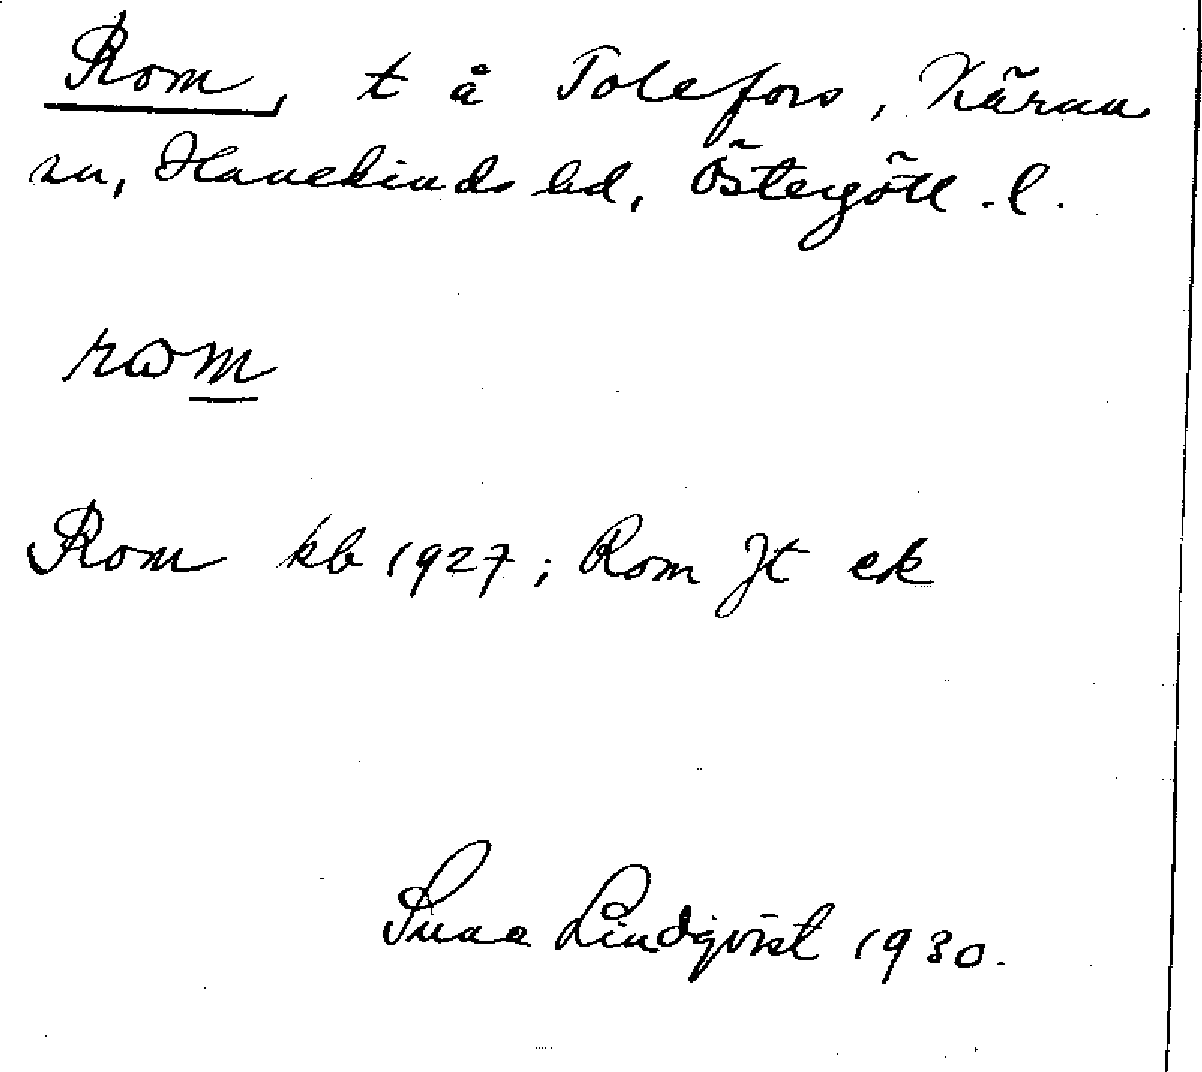 Rom, t å Tolefors, Kärna
sn, Hanekinds hd, Östergötl. l.
rωm
Rom kb 1927; Rom Jt ek
Suna Lindqvist 1930.